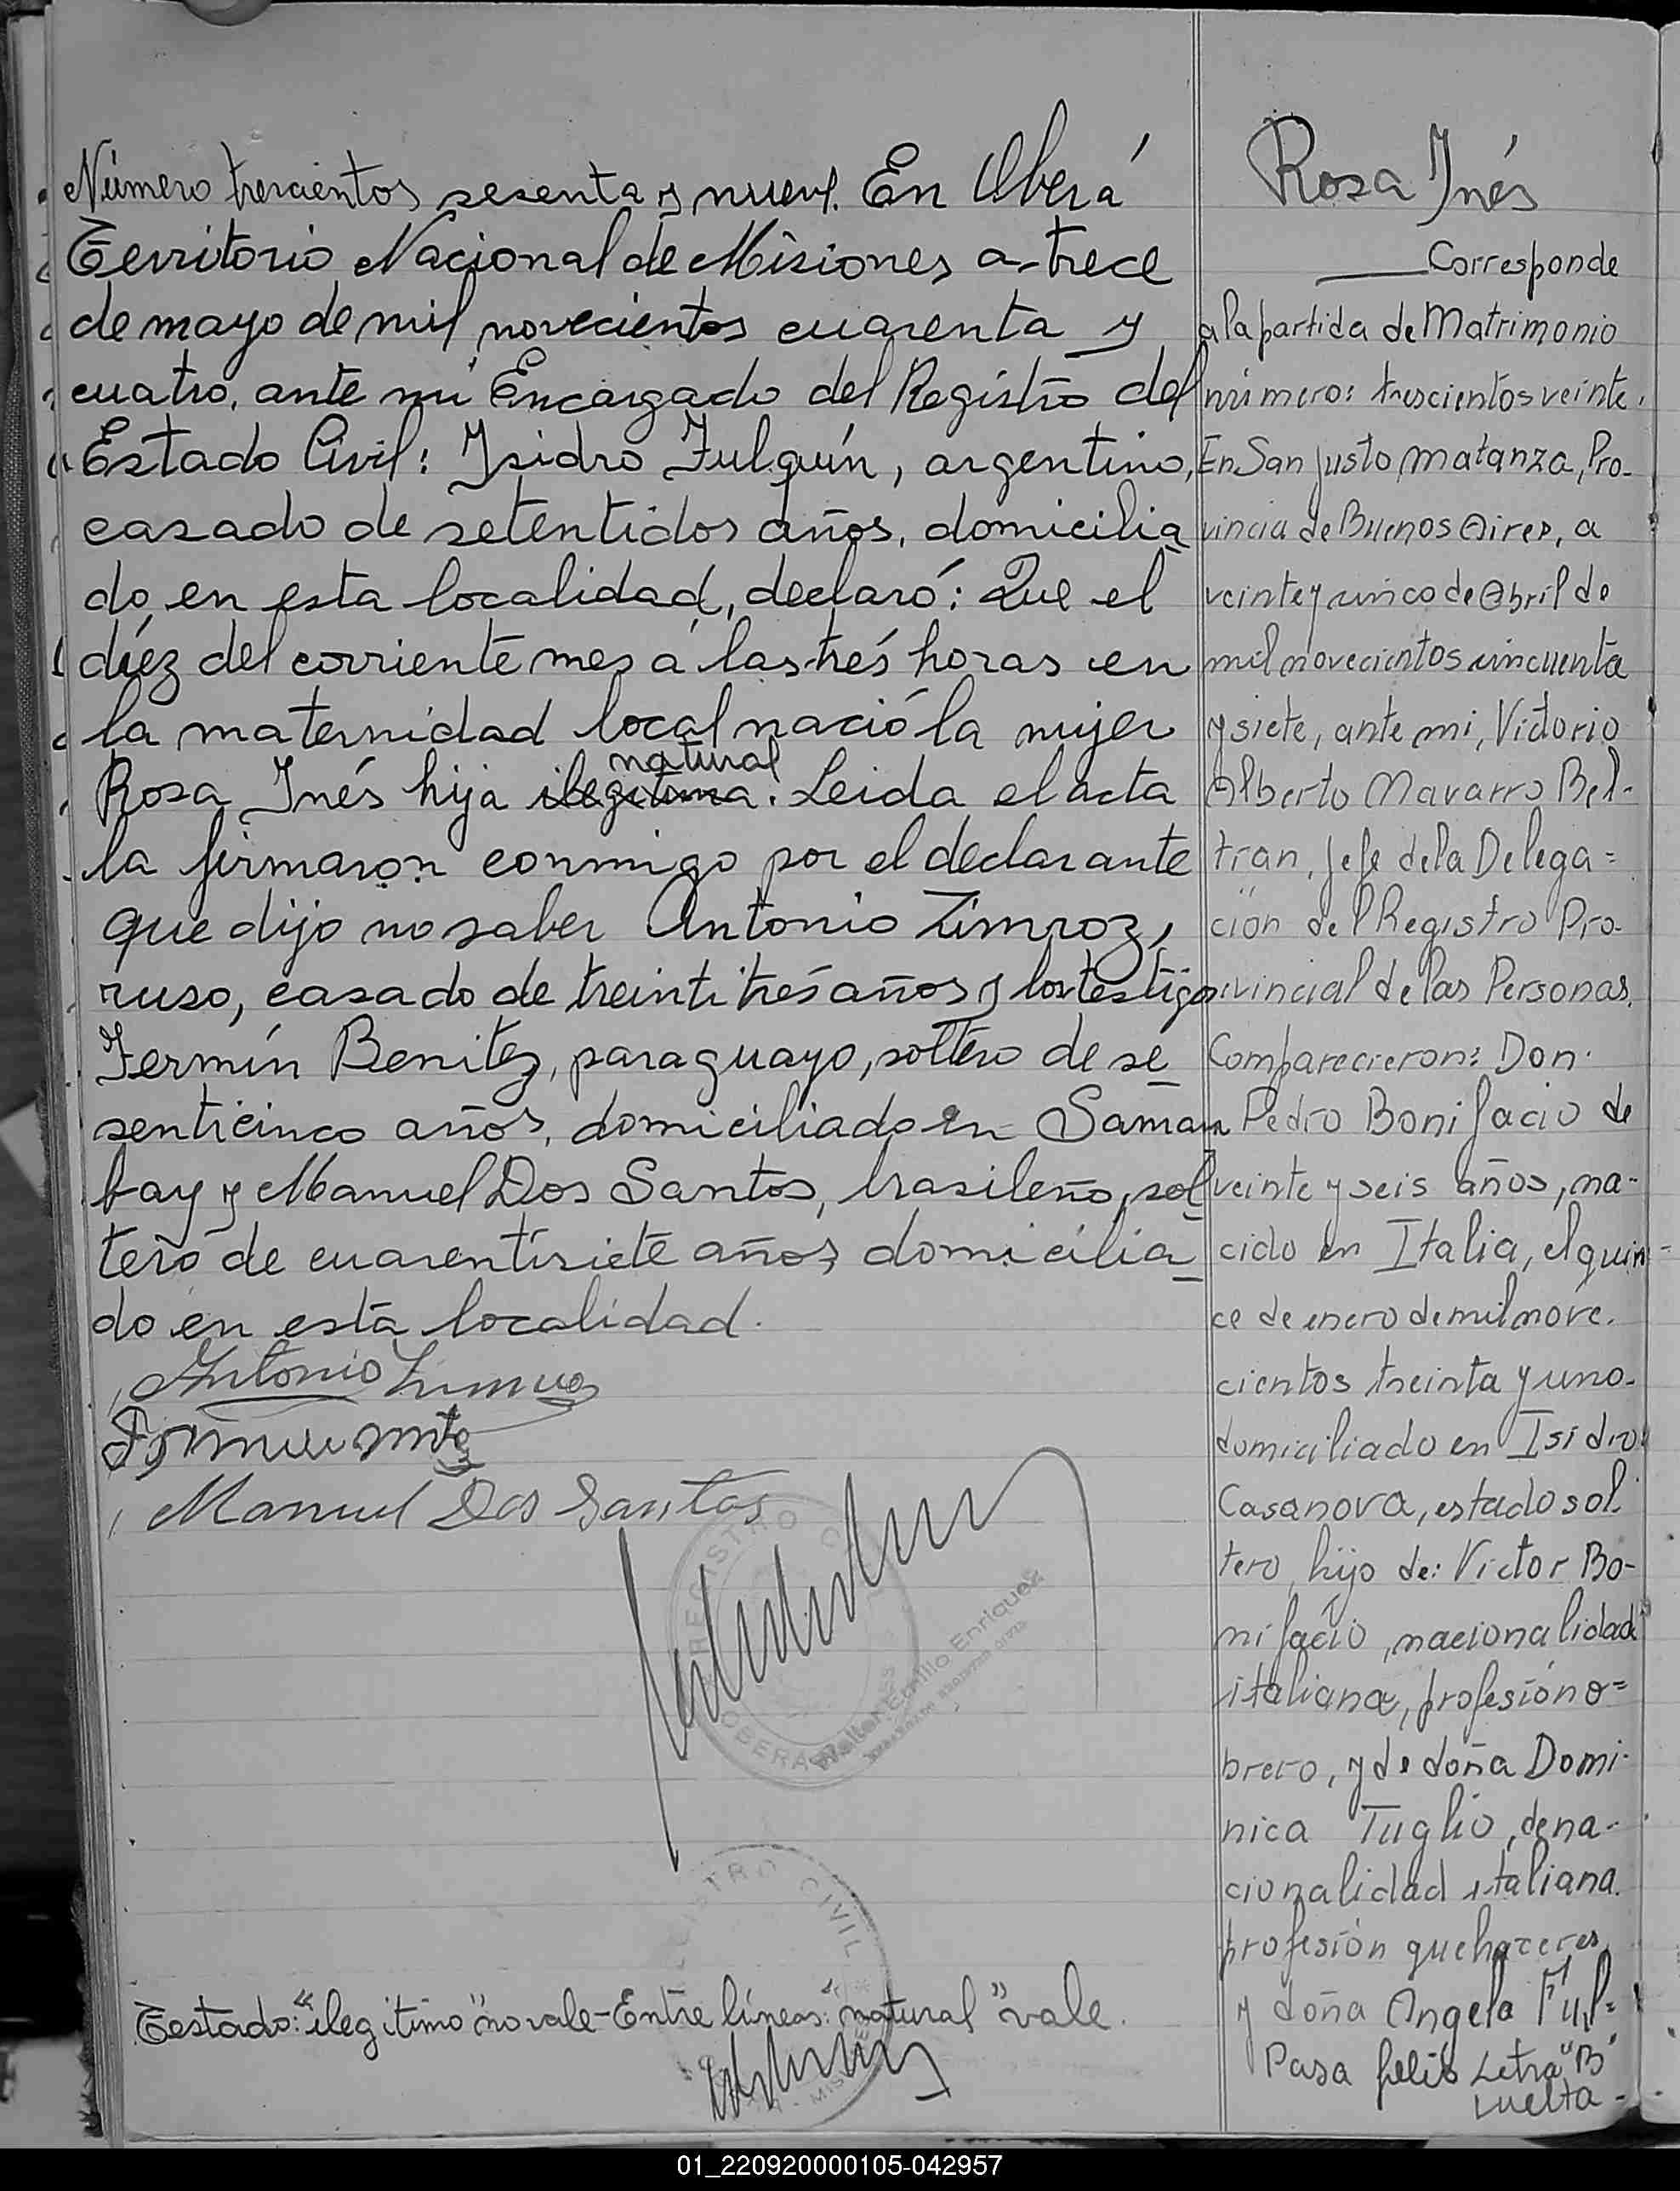 Número trescientos sesenta y nueve. En Oberá
Territorio Nacional de Misiones a trece
de mayo de mil novecientos cuarenta y
cuatro, ante mí Encargado del Registro del
Estado Civil: Isidro Fulquín, argentino,
casado de setentidos años, domicilia
do en esta localidad, declaró: Que el
diéz del corriente mes a las trés horas en
la maternidad local nació la mujer
natural
Rosa Inés hija ilegitima. Leida el acta
la firmaron conmigo por el declarante
que dijo no saber Antonio Zimroz,
ruso, casado de treintitrés años y los testigos
Fermín Benitez, paraguayo, soltero de se
senticinco años, domiciliado en Samam
bay y Manuel Dos Santos, brasileño, sol
tero de cuarentisiete años domicilia
do en esta localidad.
Antonio
Manuel Dos Santos
REGISTRO
OBERA
Walter Emilio Enriquez
REGISTRO CIVIL
Testado: "ilegitimo" no vale - Entre líneas: "natural" vale.
Rosa Inés
Corresponde
a la partida de Matrimonio
número: trescientos veinte.
En San Justo, matanza, Pro-
vincia de Buenos Aires, a
veinte y cinco de Abril de
mil novecientos cincuenta
y siete, ante mi, Victorio
Alberto Navarro Bel-
tran, Jefe de la Delega=
ción del Registro Pro-
vincial de las Personas.
Comparecieron: Don
Pedro Bonifacio de
veinte y seis años, na-
cido en Italia, el quin-
ce de enero de mil nove.
cientos treinta y uno.
domiciliado en Isidro
Casanova, estado sol.
tero, hijo de: Victor Bo-
nifacio, nacionalidad
italiana, profesión o=
brero, y de doña Domi-
nica Tuglio, de na-
cionalidad italiana.
profesión quehaceres
y doña Angela Ful=
Pasa folio Letra "B"
vuelta -
01_220920000105-042957